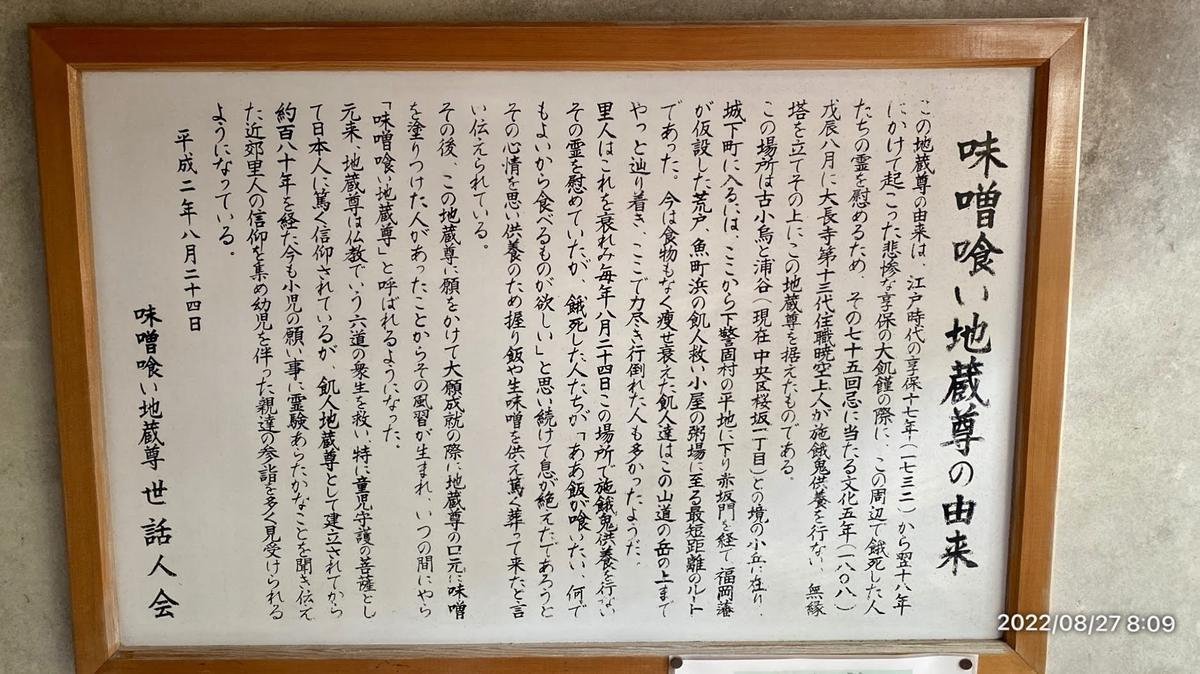 味噌喰い地蔵尊の由来
この地蔵尊の由来は、江戸時代の享保十七年(一七三二)から翌十八年
にかけて起こった悲惨な享保の大飢饉の際に、この周辺で餓死した人
たちの霊を慰めるため、その七十五回忌に当たる文化五年(一八〇八)
戊辰八月に大長寺第十三代住職暁空上人が施餓鬼供養を行ない、無縁
塔を立てその上にこの地蔵尊を据えたものである。
この場所は古小烏と浦谷(現在中央区桜坂一丁目)との境の小丘に在り、
城下町に入るには、ここから下警固村の平地に下り赤坂門を経て福岡藩
が仮設した荒戸、魚町浜の飢人救い小屋の粥場に至る最短距離のルート
であった。今は食物もなく痩せ衰えた飢人達はこの山道の岳の上まで
やっと辿り着き、ここで力尽き行倒れた人も多かったようだ。
里人はこれを哀れみ毎年八月二十四日この場所で施餓鬼供養を行ない
その霊を慰めていたが、餓死した人たちが「ああ飯が喰いたい、何で
もよいから食べるものが欲しい」と思い続けて息が絶えたであろうと
その心情を思い供養のため握り飯や生味噌を供え篤く葬って来たと言
い伝えられている。
その後、この地蔵尊に願をかけて大願成就の際に地蔵尊の口元に味噌
を塗りつけた人があったことからその風習が生まれ、いつの間にやら
「味噌喰い地蔵尊」と呼ばれるようになった。
元来、地蔵尊は仏教でいう六道の衆生を救い、特に童児守護の菩薩とし
て日本人に篤く信仰されているが、飢人地蔵尊として建立されてから
約百八十年を経た今も小児の願い事に霊験あらたかなことを聞き伝え
た近郊里人の信仰を集め幼児を伴った親達の参詣を多く見受けられる
ようになっている。
平成二年八月二十四日
味噌喰い地蔵尊世話人会
2022/08/27 8:09